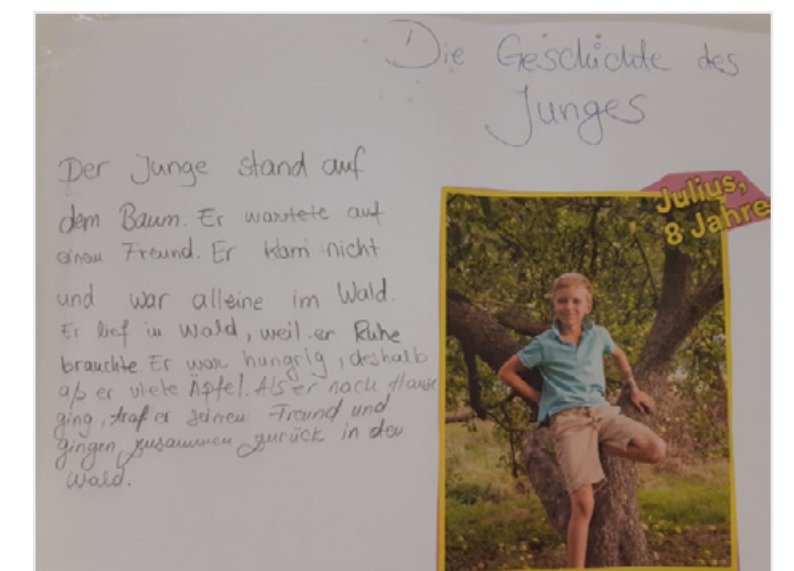 Die Geschichte des
Junges
Der Junge stand auf
dem Baum. Er wartete auf
einen Freund. Er kam nicht
und war alleine im Wald.
Er lief in Wald, weil er Ruhe
brauchte. Er war hungrig, deshalb
aß er viele Äpfel. Als er nach Hause
ging, traf er seinen Freund und
gingen zusammen zurück in den
Wald.
Julius,
8 Jahre